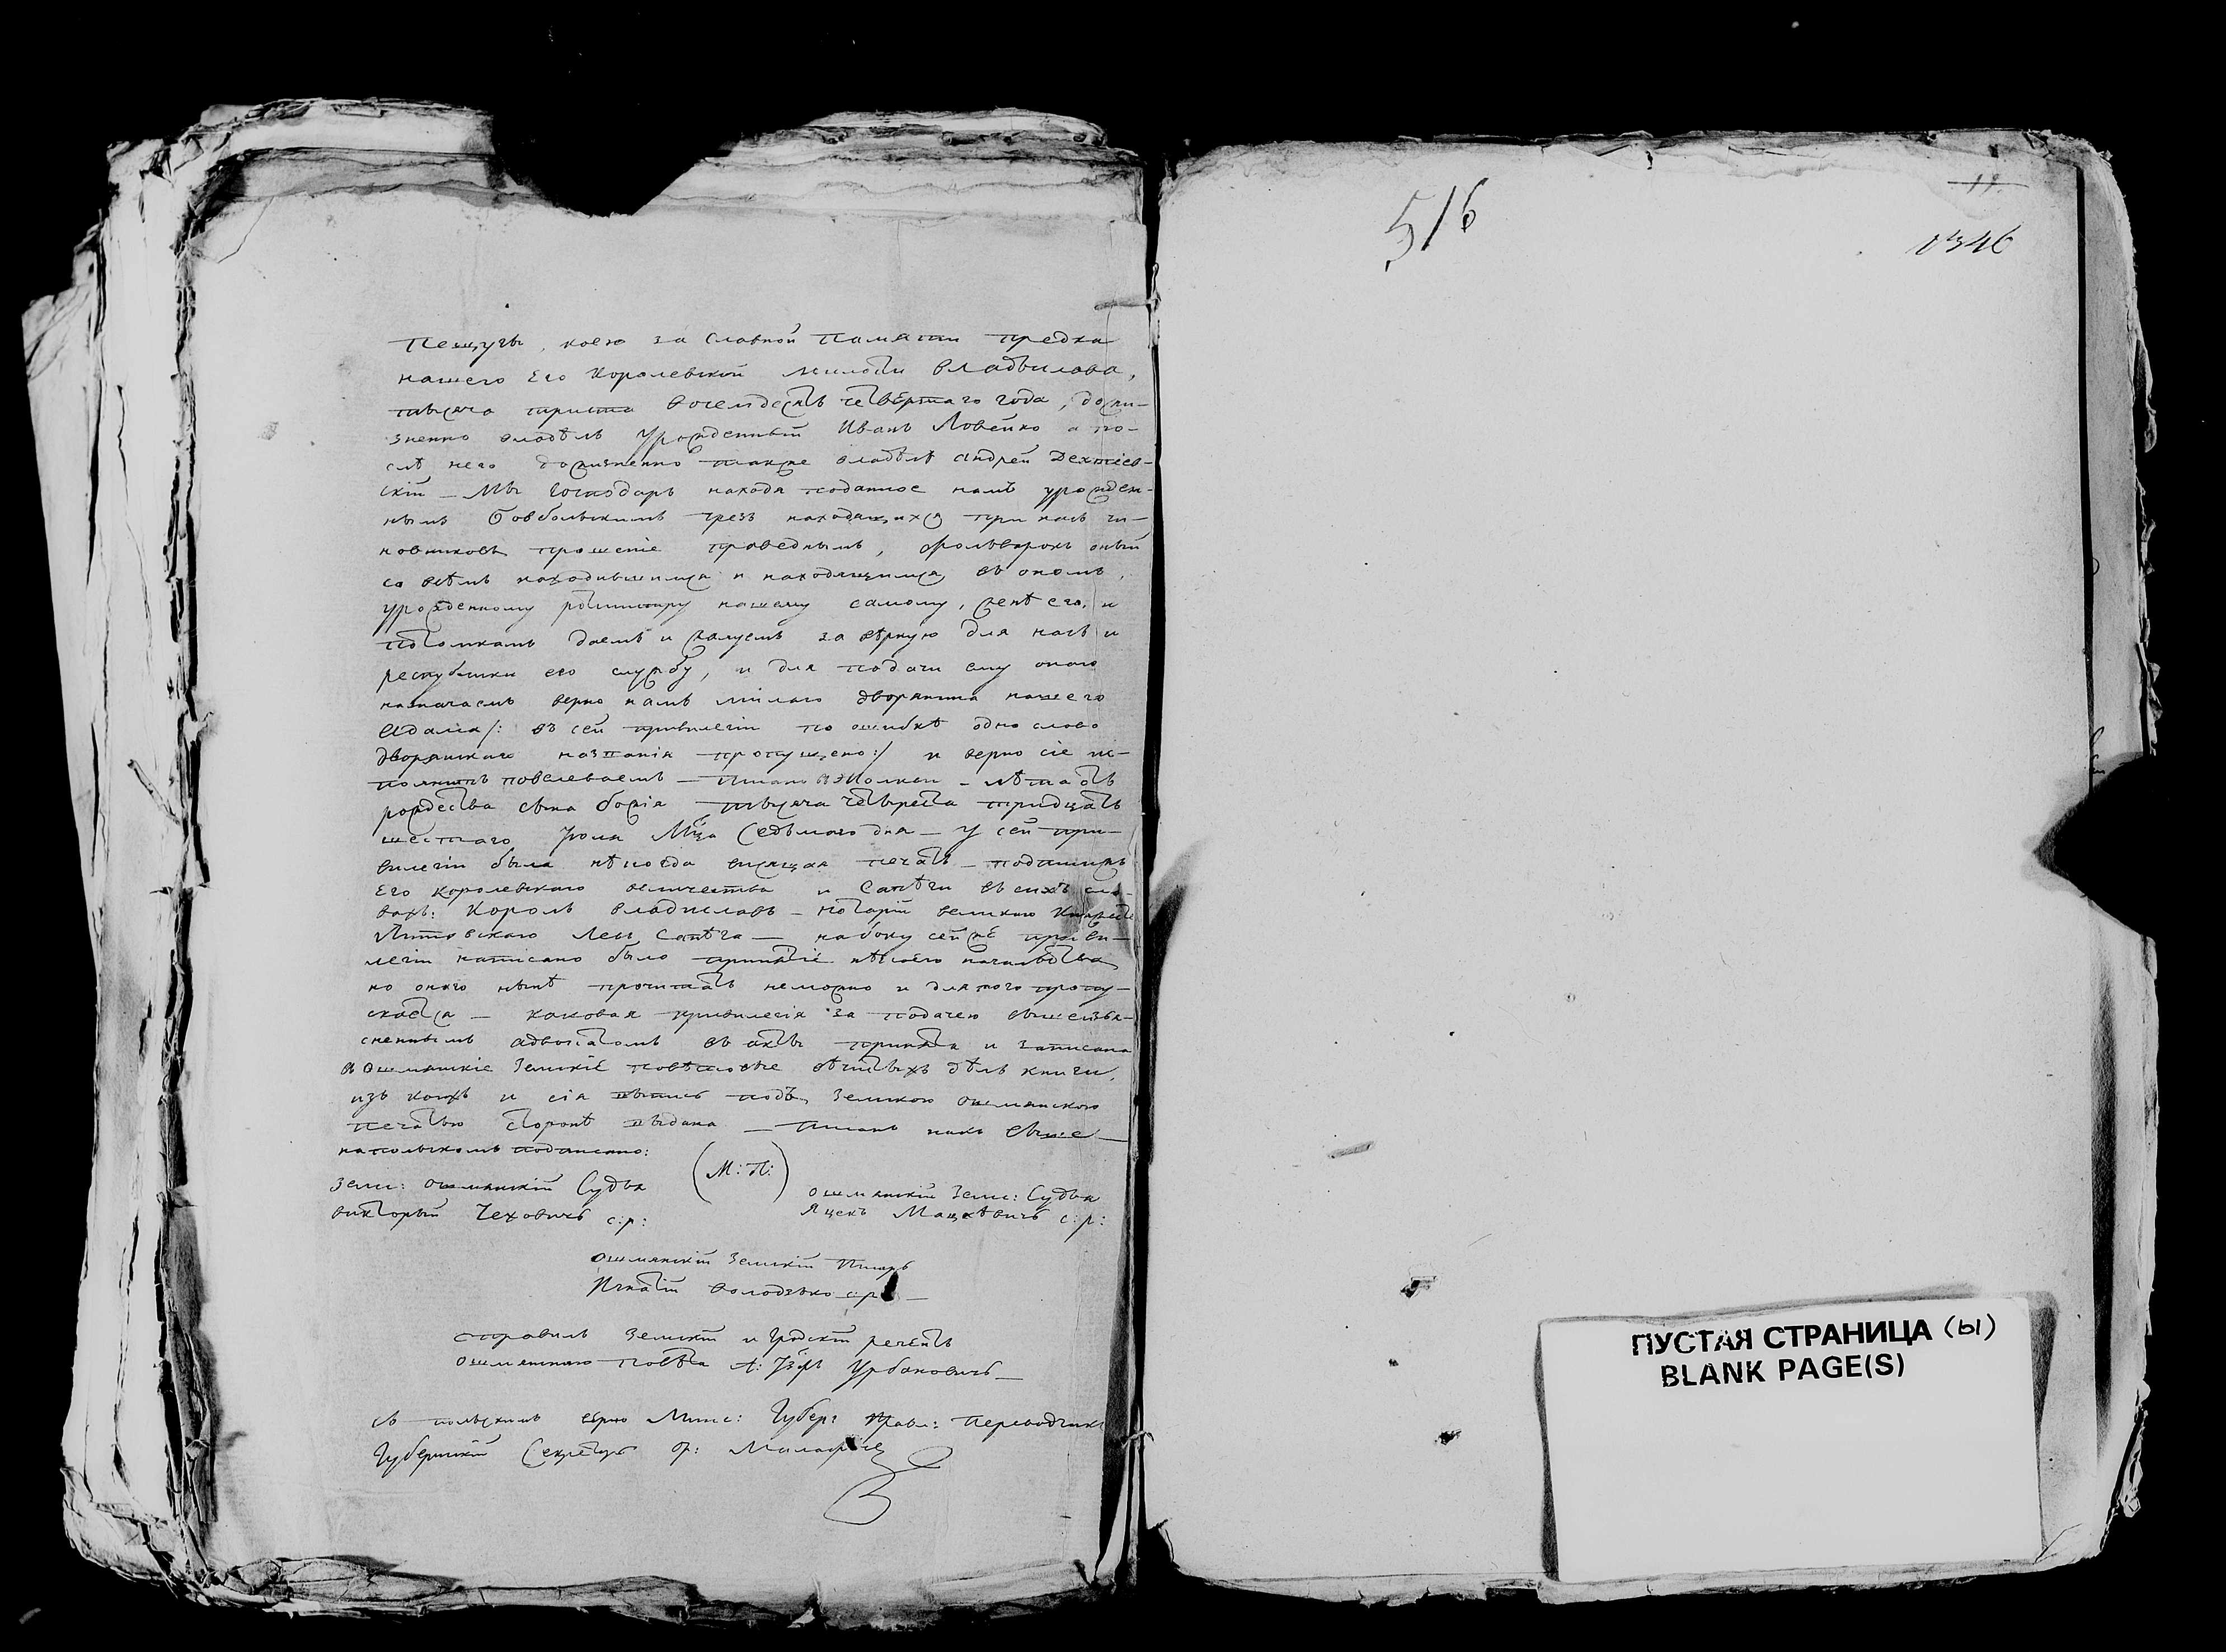 Пещугы, коею за славной памяти предка
нашего Его Королевской милости Владислава,
тысяча триста восемдесятъ четвертаго года, дожи-
зненно владѣлъ урожденный Иванъ Ловейко а по-
слѣ него дожизненно также владѣлъ Андрей Дехтіев-
скій — Мы Господарь находя поданное намъ урожден-
нымъ чрезъ находящихся при насъ чи-
новниковъ прошеніе праведнымъ, фольварокъ оный
со всѣмъ находившимся и находящимся въ ономъ,
урожденному ротмистру нашему самому, женѣ его, и
потомкамъ даемъ и жалуемъ за вѣрную для насъ и
республики его службу, и для подачи ему онаго
назначаемъ верно намъ милаго дворянина нашего
Адама /: въ сей привилегіи по ошибкѣ одно слово
дворянскаго названія пропущено :/ и верно сіе ис-
полнить повелеваемъ — Писано лѣта отъ
рождества сына божія тысяча четыреста тридцать
шестаго Іюля Мца Седьмаго дня — У сей при-
вилегіи была нѣкогда висящая печать — подпись
Его Королевскаго величества и Сапѣги въ сихъ сло-
вахъ: Король Владиславъ — Нотарій великаго Княжества
Литовскаго Левъ Сапѣга — на боку сей же приви-
легіи написано было принятіе нѣкоего начальства
но онаго нынѣ прочитать неможно и для того пропу-
скается — каковая привилегія за подачею вышеизъя-
сненнымъ адвокатомъ въ акты принята и записана
въ Ошмянскіе Земскіе повѣтовые вѣчныхъ дѣлъ книги,
изъ коихъ и сія выпись подъ Земскою ошмянскою
печатью сторонѣ выдана — Писанъ какъ выше —
на польскомъ подписано:
Земс: ошмянскій Судья (М: П:) ошмянскій Земс: Судья
Викторый Чеховичъ с:р: Яцекъ Мацкѣвичъ с:р:
Ошмянскій Земскій Писарь
Игнатій Володзько с:р: —
справилъ Земскій и Гродскій регентъ
ошмянскаго повѣта А: Юзефъ Урбановичъ —
съ польскимъ вѣрно Минс: Губер: Правл: Переводчикъ
Губернскій Секретарь
5/6
11
346
ПУСТАЯ СТРАНИЦА (ы)
BLANK PAGE(S)